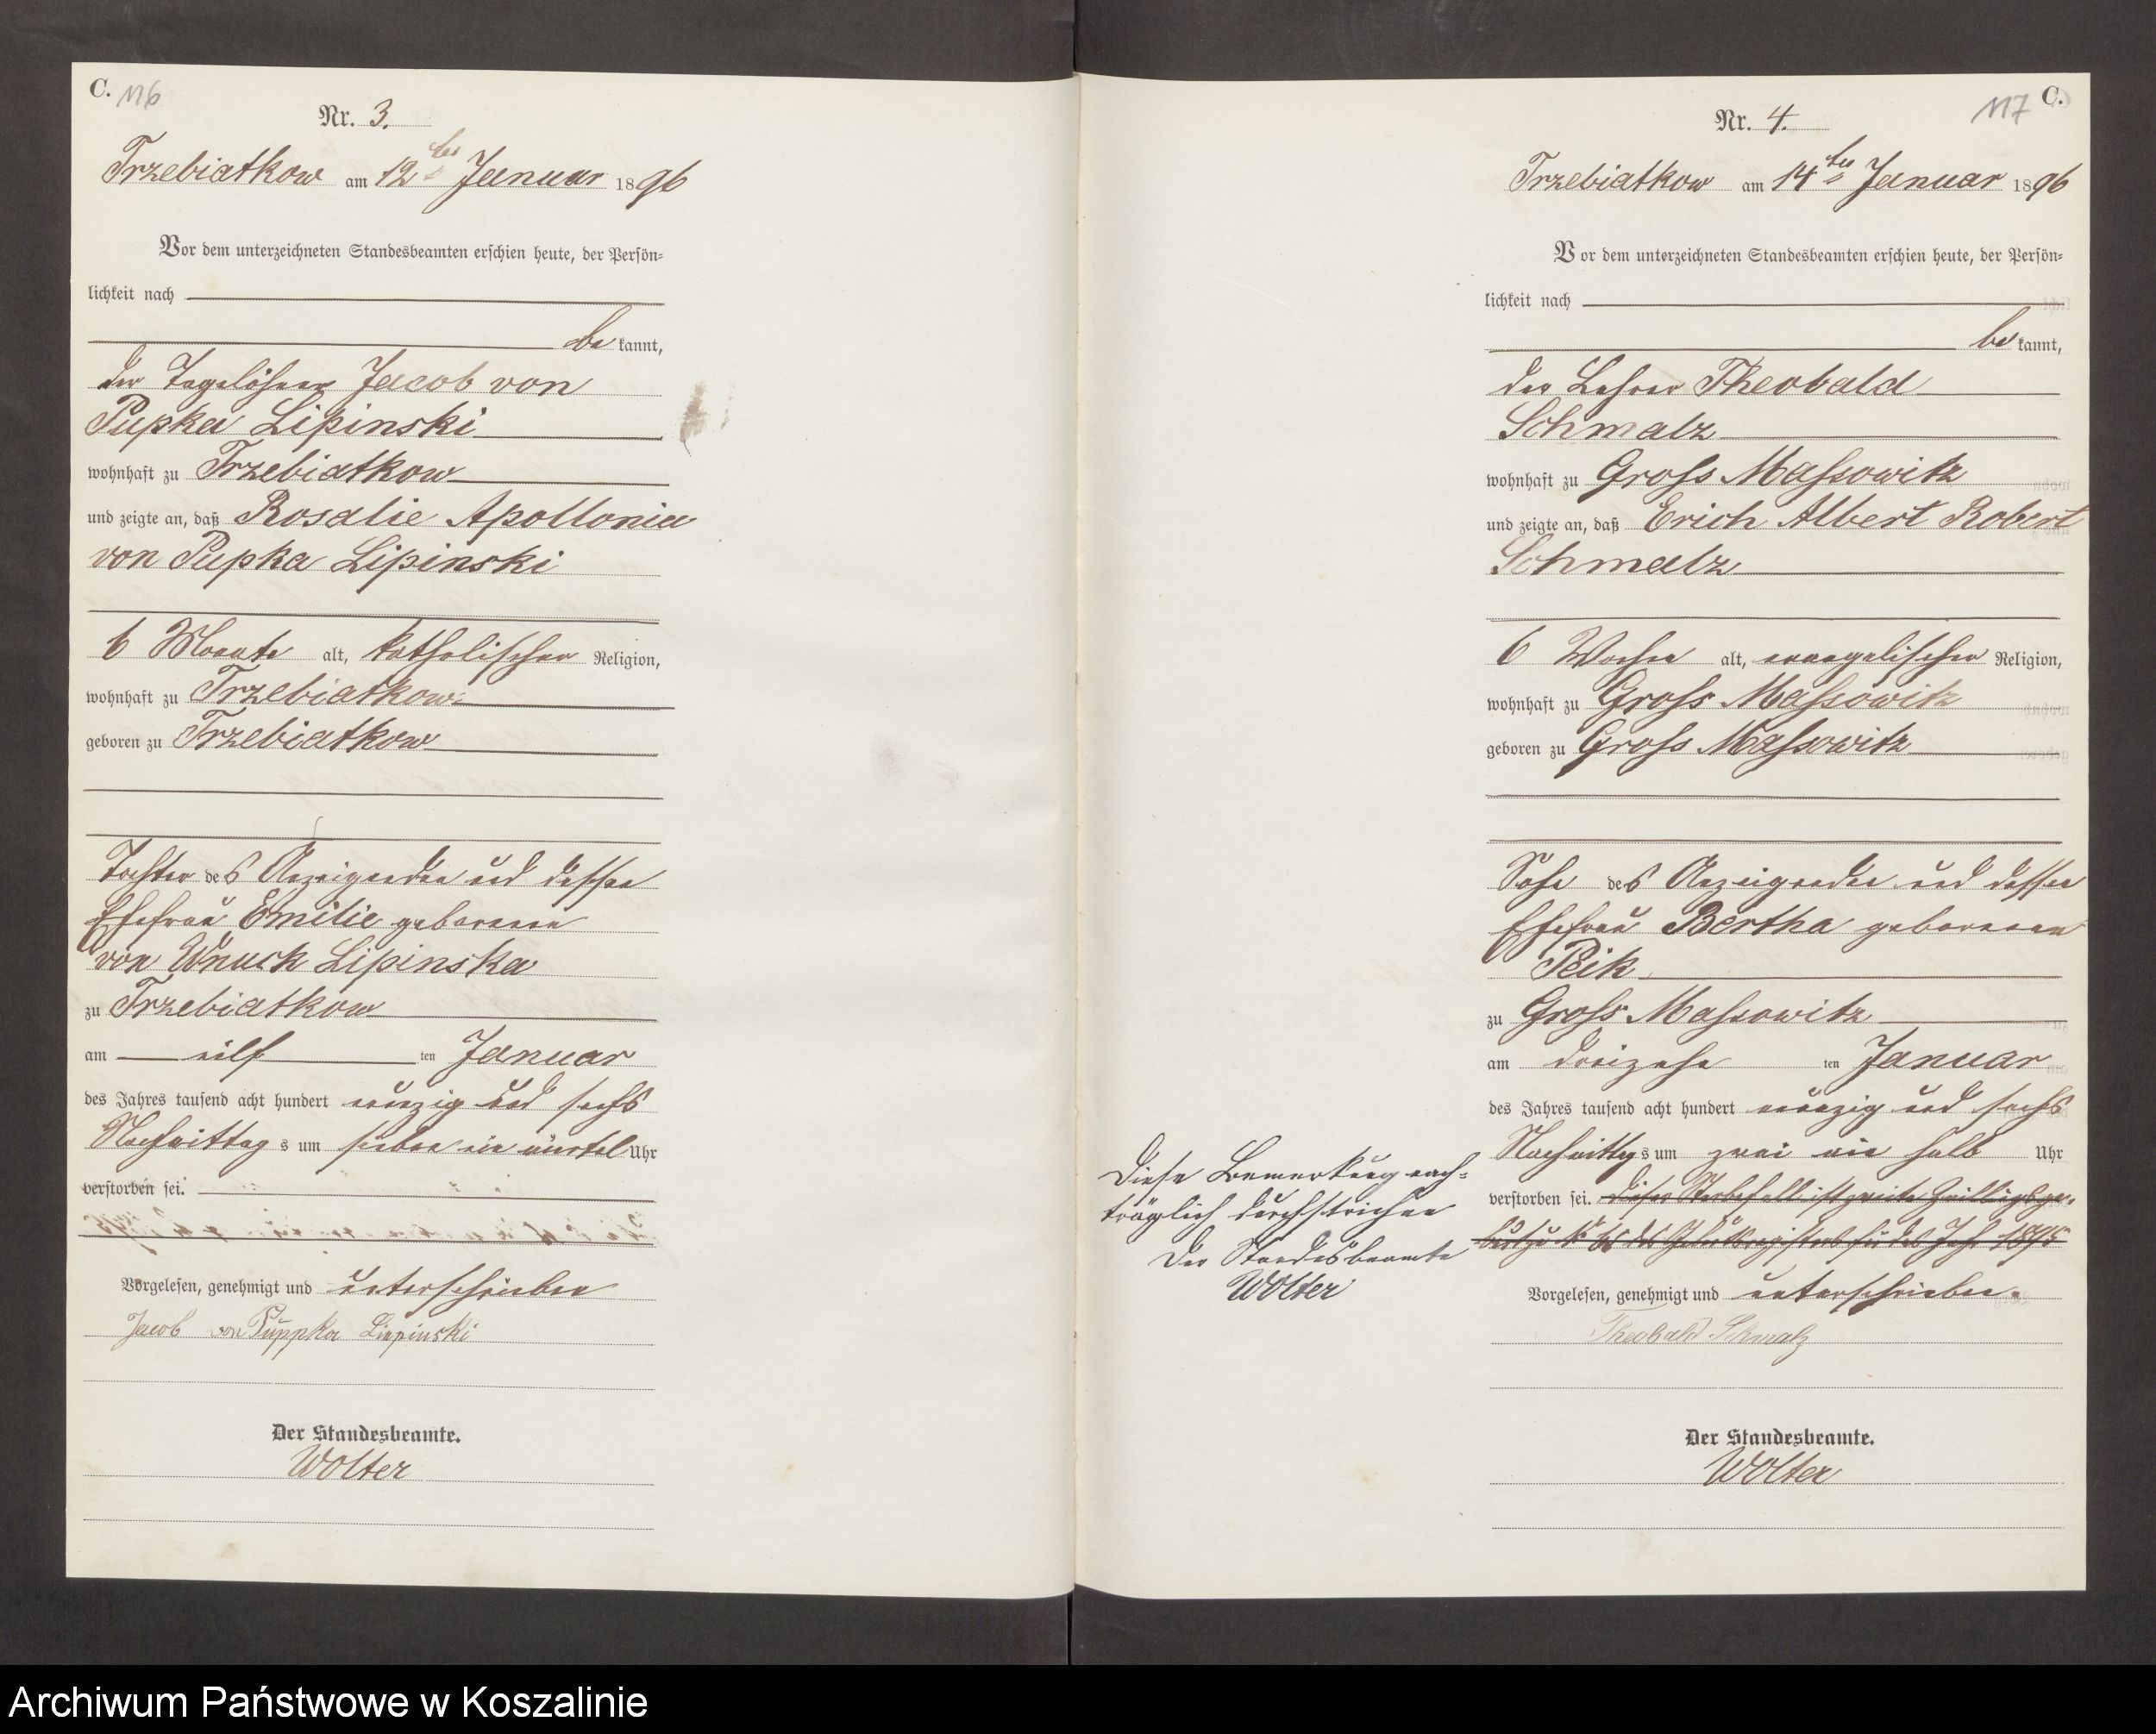 C. 116
Nr. 3.
Trzebiatkow am 12ten Januar 1896
Vor dem unterzeichneten Standesbeamten erschien heute, der Persön-
lichkeit nach
be kannt,
der Tagelöhner Jacob von
Pupka Lipinski
wohnhaft zu Trzebiatkow
und zeigte an, daß Rosalie Apollonia
von Pupka Lipinski
6 Monate alt, katholischer Religion,
wohnhaft zu Trzebiatkow
geboren zu Trzebiatkow
Tochter des Anzeigenden und dessen
Ehefrau Emilie geborenen
von Wnuck Lipinska
zu Trzebiatkow
am eilf ten Januar
des Jahres tausend acht hundert neunzig und sechs
Nachmittags um sieben ein viertel Uhr
verstorben sei.
Vorgelesen, genehmigt und unterschrieben
Jacob von Puppka Liepinski
Der Standesbeamte.
Wolter
117 C.
Nr. 4.
Trzebiatkow am 14ten Januar 1896
Vor dem unterzeichneten Standesbeamten erschien heute, der Persön-
lichkeit nach
be kannt,
der Lehrer Theobald
Schmalz
wohnhaft zu Gross Massowitz
und zeigte an, daß Erich Albert Robert
Schmalz
6 Wochen alt, evangelischer Religion,
wohnhaft zu Gross Massowitz
geboren zu Gross Massowitz
Sohn des Anzeigenden und dessen
Ehefrau Bertha geborenen
Peik
zu Gross Massowitz
am dreizehn ten Januar
des Jahres tausend acht hundert neunzig und sechs
Nachmittags um zwei ein halb Uhr
verstorben sei. Dieser Sterbefall ist zweite Zwillingsge-
burt zu Nr des Geburtsregisters für das Jahr 1895
Diese Bemerkung nach-
träglich durchstrichen
Der Standesbeamte
Wolter
Vorgelesen, genehmigt und unterschrieben.
Theobald Schmalz
Der Standesbeamte.
Wolter
Archiwum Państwowe w Koszalinie